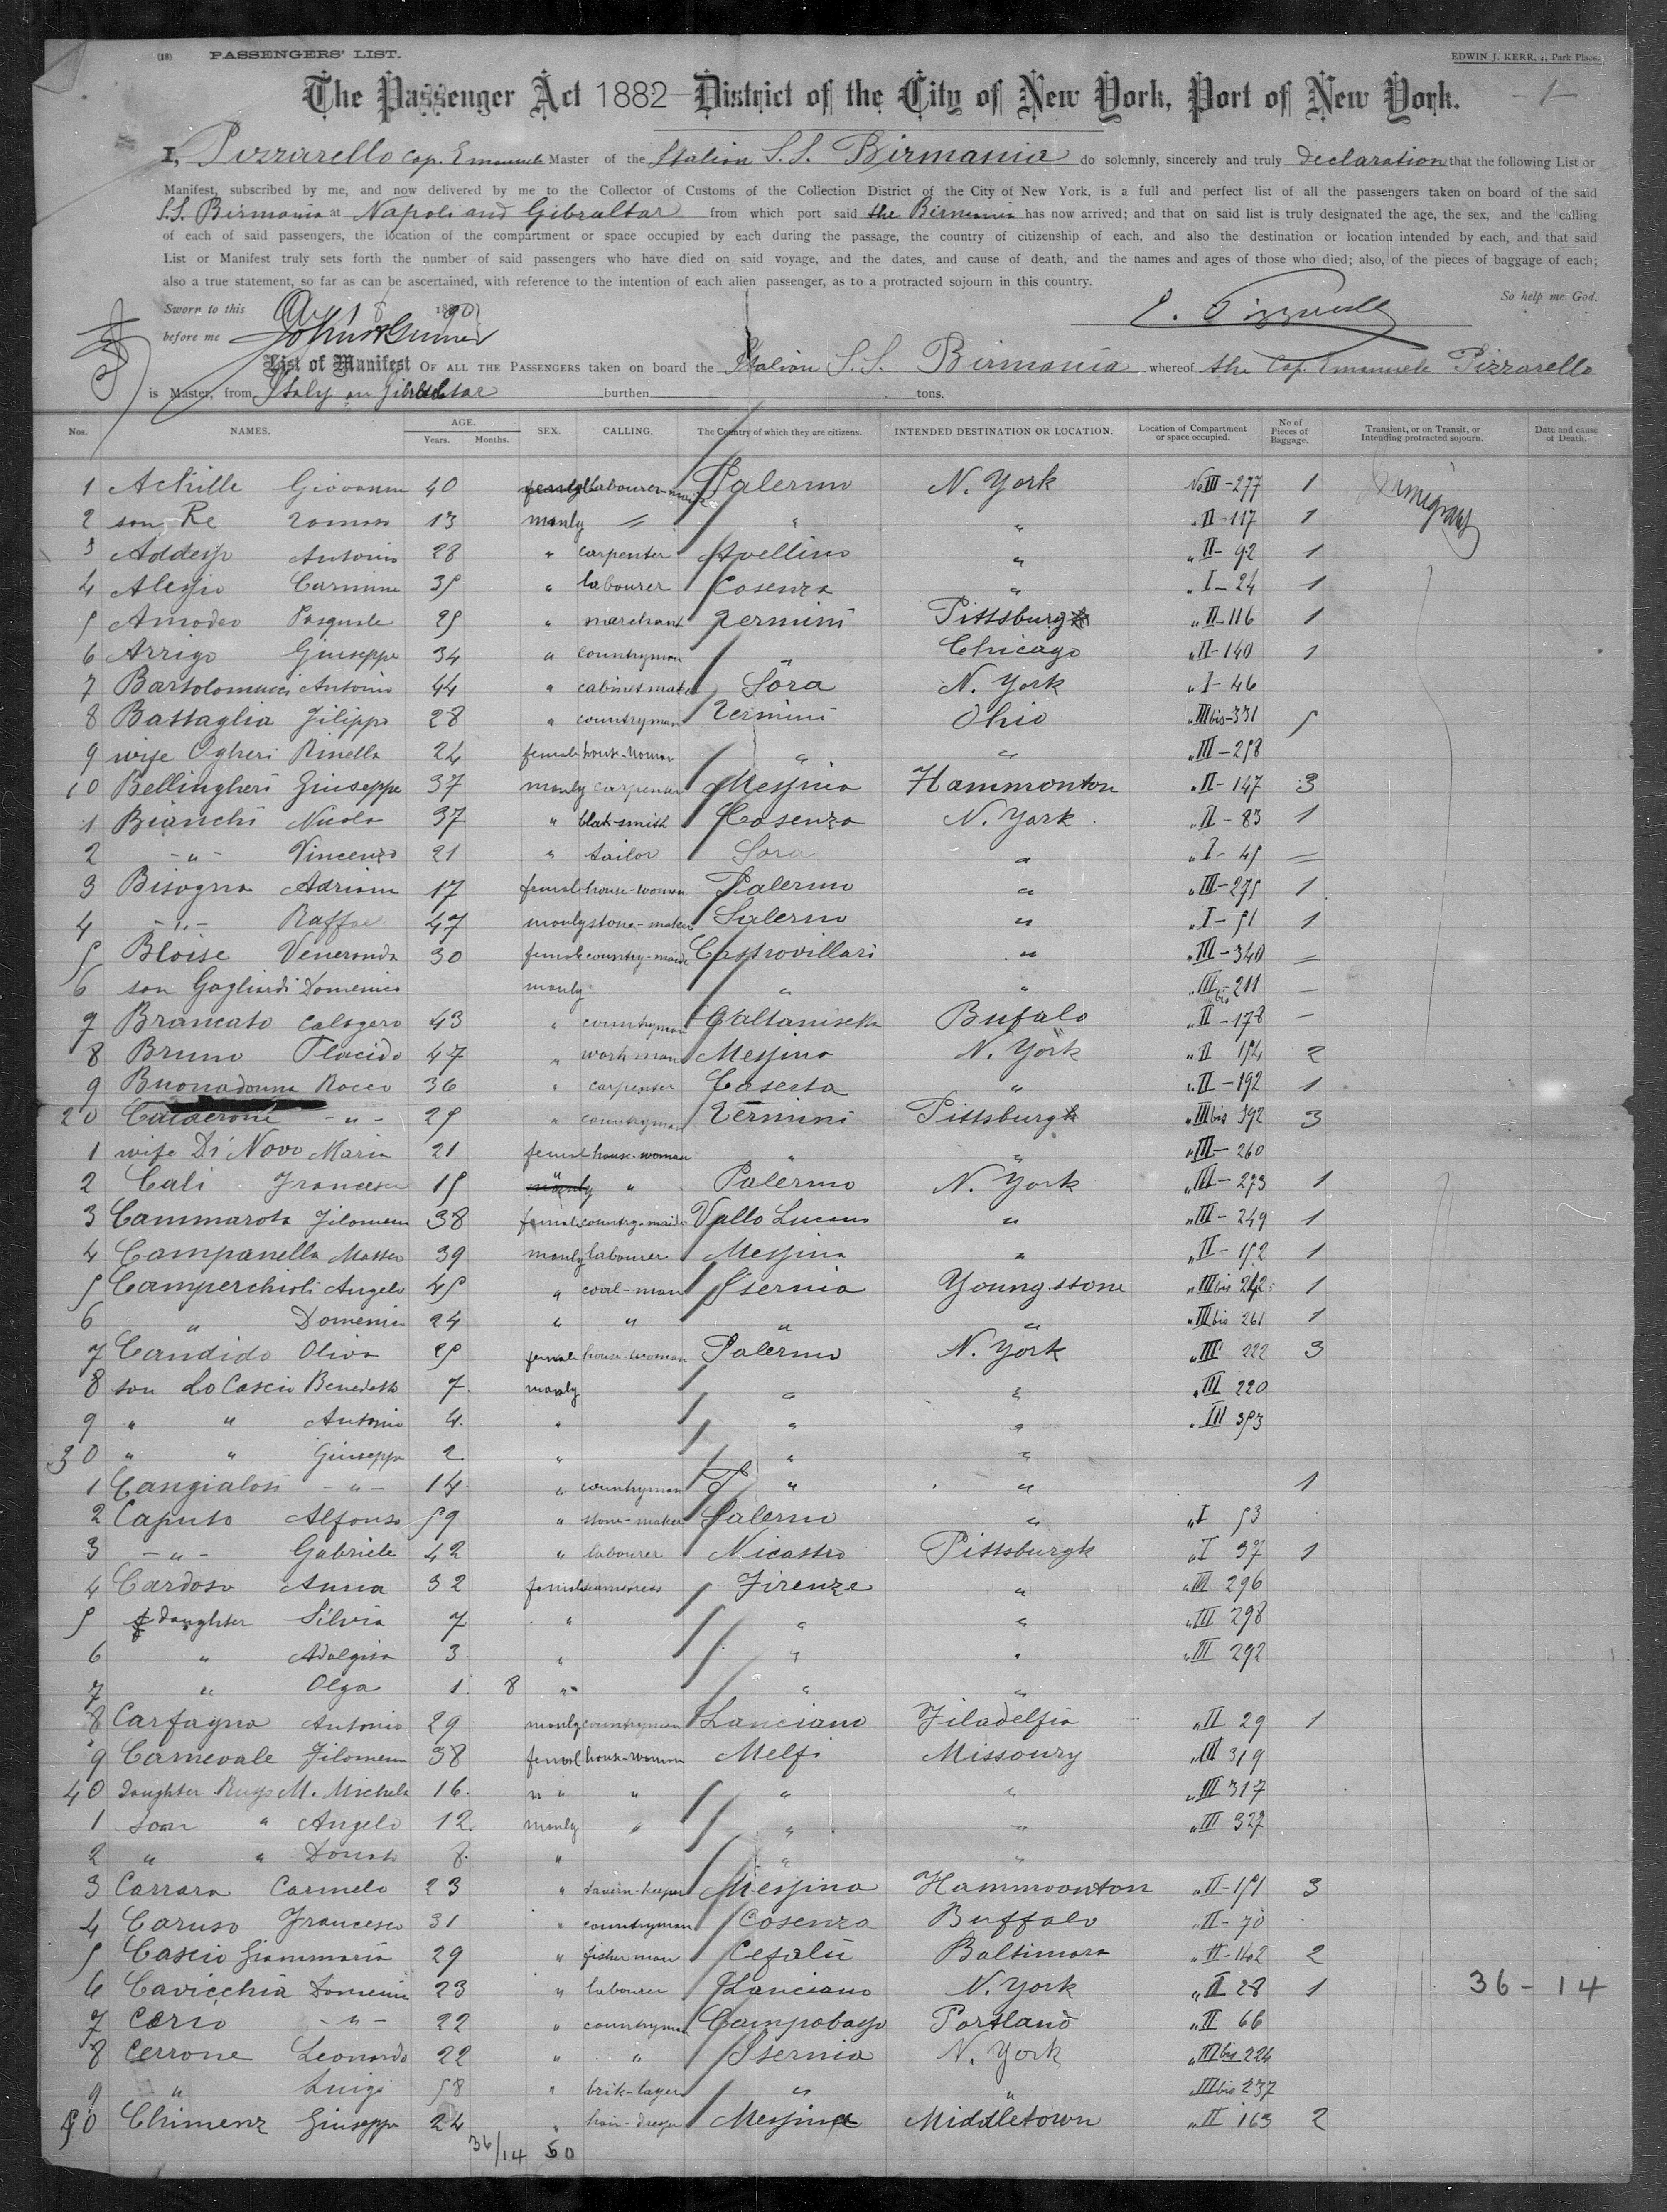 (18) PASSENGERS' LIST. EDWIN J. KERR, 4, Park Place.
The Passenger Act 1882 District of the City of New York, Port of New York. -1-
I, Pizzarello Cap. Emanuele Master of the Italian S.S. Birmania do solemnly, sincerely and truly Declaration that the following List or
Manifest, subscribed by me, and now delivered by me to the Collector of Customs of the Collection District of the City of New York, is a full and perfect list of all the passengers taken on board of the said
S.S. Birmania at Napoli and Gibraltar from which port said the Birmania has now arrived; and that on said list is truly designated the age, the sex, and the calling
of each of said passengers, the location of the compartment or space occupied by each during the passage, the country of citizenship of each, and also the destination or location intended by each, and that said
List or Manifest truly sets forth the number of said passengers who have died on said voyage, and the dates, and cause of death, and the names and ages of those who died; also, of the pieces of baggage of each;
also a true statement, so far as can be ascertained, with reference to the intention of each alien passenger, as to a protracted sojourn in this country.
Sworn to this 1890 So help me God.
before me
List of Manifest OF ALL THE PASSENGERS taken on board the Italian S.S. Birmania whereof the Cap. Emanuele Pizzarello
is Master, from Italy Gibraltar burthen tons.
Nos. NAMES. AGE. Years. Months. SEX. CALLING. The Country of which they are citizens. INTENDED DESTINATION OR LOCATION. Location of Compartment or space occupied. No of Pieces of Baggage. Transient, or on Transit, or Intending protracted sojourn. Date and cause of Death.
1 Achille Giovanna 40 labourer Palermo N. York No III-277 1 Immigrant
2 son Re Tomaso 13 manly " " " " II-117 1
3 Addesso Antonio 28 " carpenter Avellino " " II-92 1
4 Alessio Carmine 35 " labourer Cosenza " " I-24 1
5 Amodeo Pasquale 25 " marchant Termini Pittsburgh " II-116 1
6 Arrigo Giuseppe 34 " countryman " Chicago " II-140 1
7 Bartolomucci Antonio 44 " cabinetmaker Sora N. York " I-46
8 Battaglia Filippo 28 " countryman Termini Ohio " IIIbis-331 5
9 wife Ogheri Rinella 24 female house-woman " " " III-258
10 Bellingheri Giuseppe 37 manly carpenter Messina Hammonton " II-147 3
1 Bianchi Nicola 37 " blak-smith Cosenza N. York " II-83 1
2 -"- Vincenzo 21 " tailor Sora " " I-45 =
3 Bisogna Adriana 17 female house-woman Palermo " " III-275 1
4 -"- Raffaele 47 manly stone-maker Salerno " " I-51 1
5 Bloise Veneranda 30 female country-maide Castrovillari " " III-340 =
6 son Gagliardi Domenico manly " " " IIIbis-211 -
7 Brancato Calogero 43 " countryman Caltanisetta Bufalo " II-178 -
8 Bruno Placido 47 " workman Messina N. York " II 154 2
9 Buonadonna Rocco 36 " carpenter Caserta " " II-192 1
20 Calderone -"- 25 " countryman Termini Pittsburgh " IIIbis 392 3
1 wife Di Novo Maria 21 female house-woman " " " III-260
2 Cali Francesca 15 " " Palermo N. York " III-273 1
3 Cammarota Filomena 38 female country-maide Vallo Lucano " " III-249 1
4 Campanella Matteo 39 manly labourer Messina " " II-152 1
5 Camperchioli Angelo 45 " coal-man Isernia Youngstone " IIIbis 242 1
6 " Domenico 24 " " " " " IIIbis 261 1
7 Candido Oliva 25 female house-woman Palermo N. York " III 222 3
8 son Lo Cascio Benedetto 7 manly " " " III 220
9 " " Antonio 4 " " " " III 353
30 " " Giuseppe 2 " " "
1 Cangialosi -"- 14 " countryman " " 1
2 Caputo Alfonso 59 " stone-maker Salerno " " I 53
3 -"- Gabriele 42 " labourer Nicastro Pittsburgh " I 37 1
4 Cardoso Anna 32 female seamstress Firenze " " III 296
5 daughter Silvia 7 " " " " III 298
6 " Adalgisa 3 " " " " III 292
7 " Olga 1 8 " " "
8 Carfagna Antonio 29 manly countryman Lanciano Filadelfia " II 29 1
9 Carnevale Filomena 38 female house-woman Melfi Missoury " III 319
40 daughter M. Michela 16 " " " " " III 317
1 son " Angelo 12 manly " " " " III 327
2 " " Donato 8 " " "
3 Carrara Carmelo 23 " tavern-keeper Messina Hammoonton " II-151 3
4 Caruso Francesco 31 " countryman Cosenza Buffalo " II-70
5 Cascio Giammaria 29 " fisherman Cefalù Baltimora " II-162 2
6 Cavicchia Domenico 23 " labourer Lanciano N. York " II 28 1 36-14
7 Cerio -"- 22 " countryman Campobasso Portland " II 66
8 Cerrone Leonardo 22 " " Isernia N. York " IIIbis 224
9 " Luigi 58 " brik-layer " " " IIIbis 237
50 Chimenz Giuseppe 24 " Messina Middletown " II 163 2
36/14 50